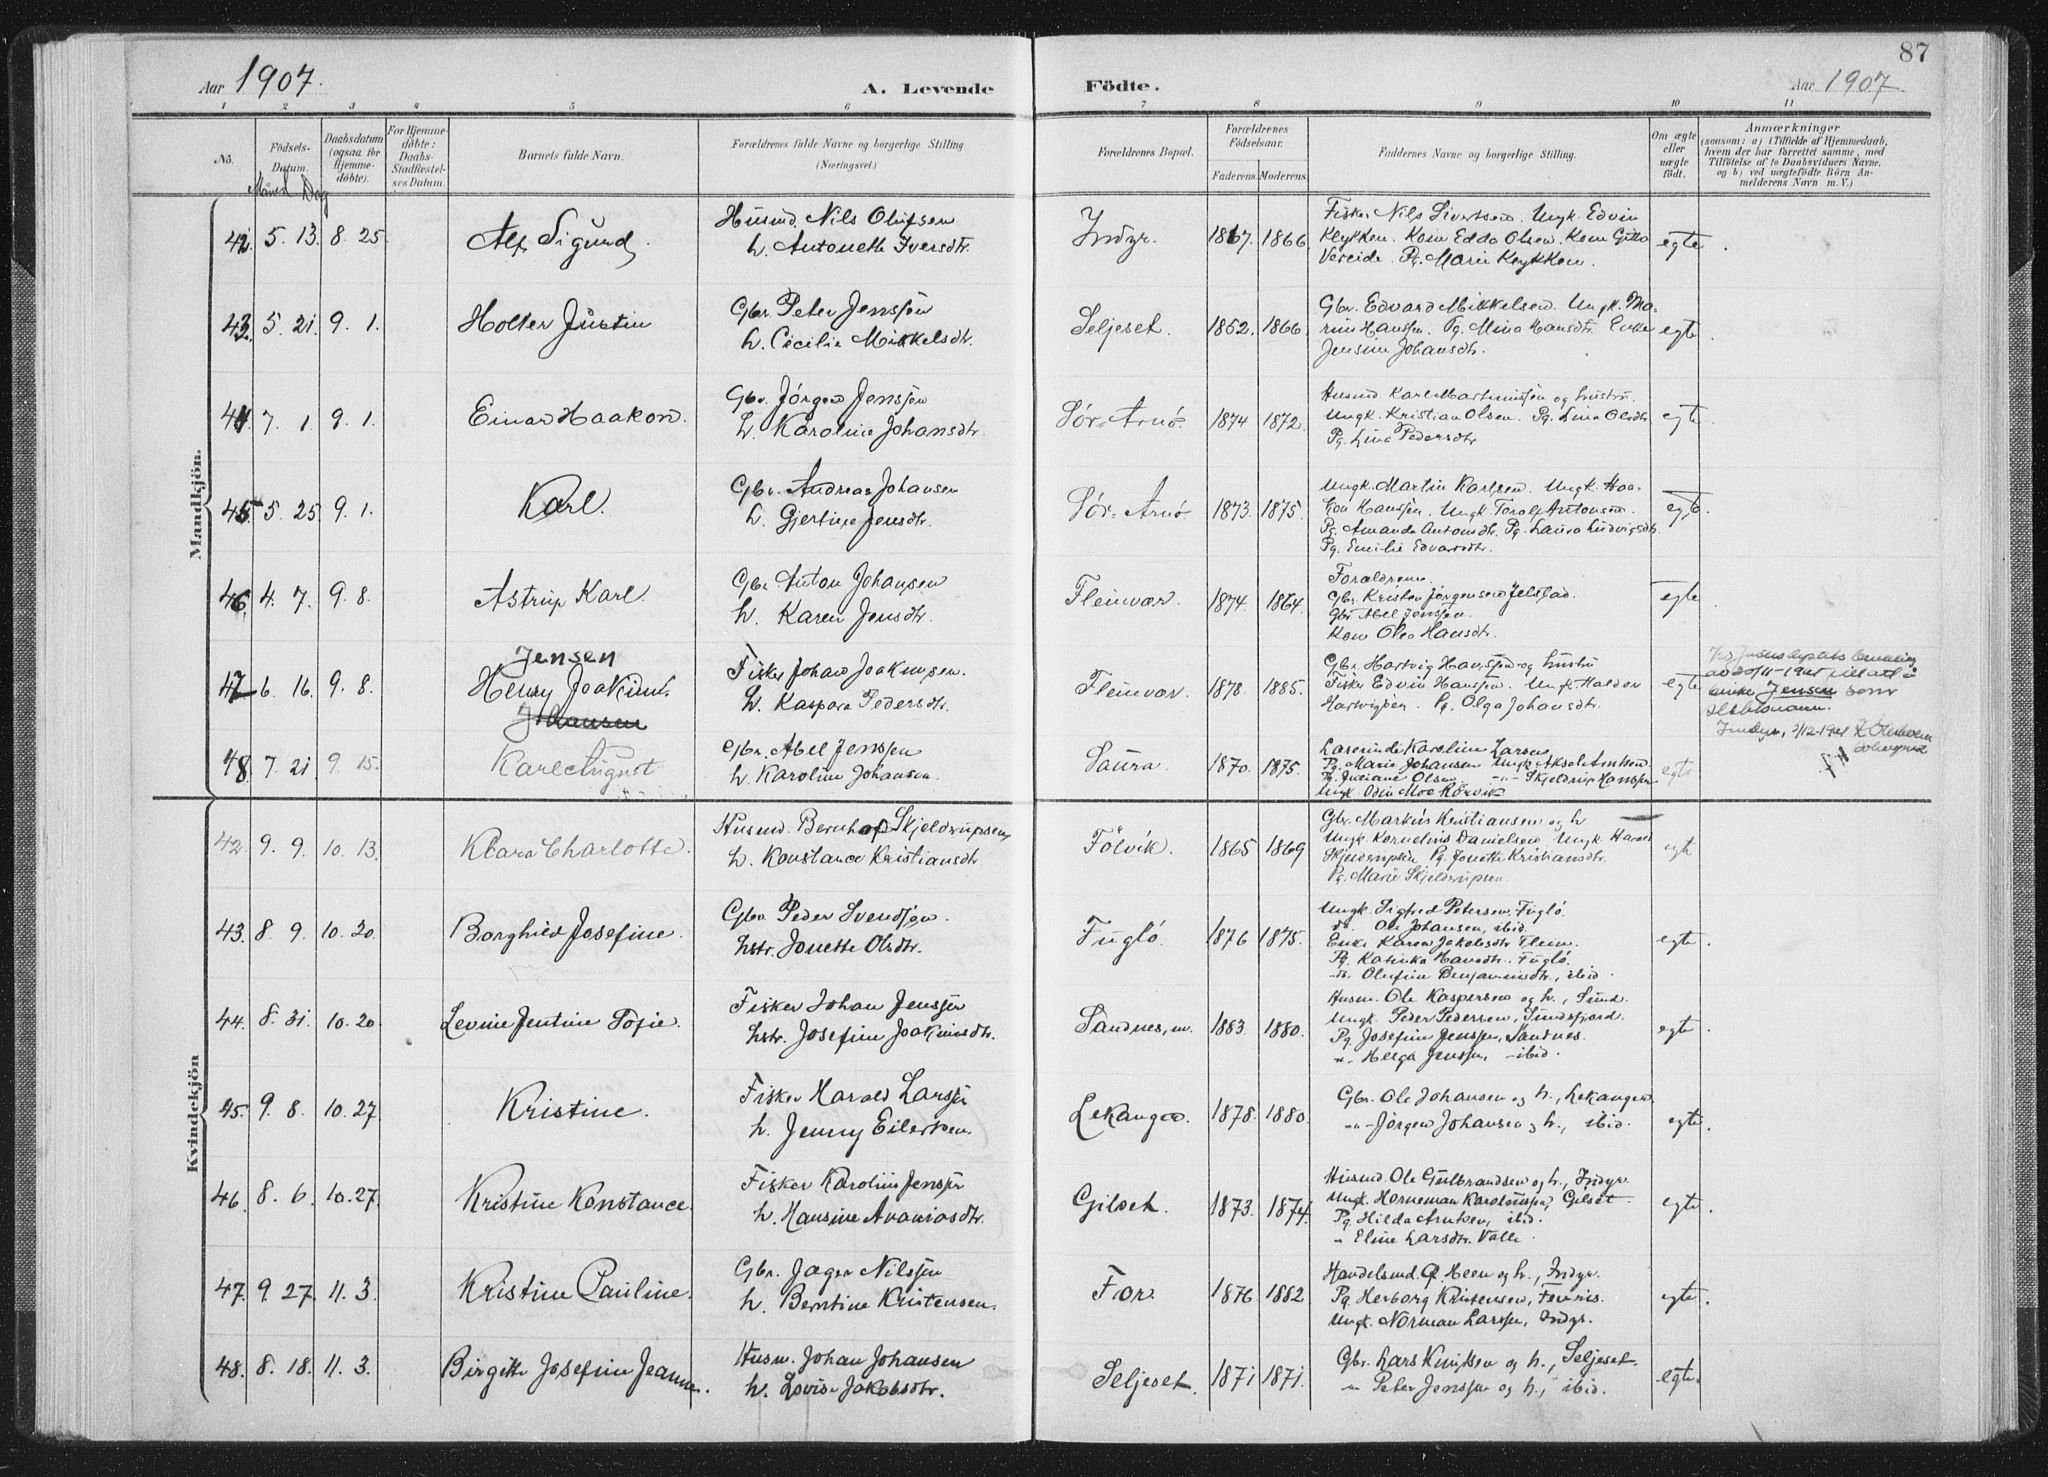 87
Aar 1907. A. Levende Födte. Aar 1907.
1 2 3 4 5 6 7 8 9 10 11
No. Födsels-Datum. Daabsdatum (ogsaa for Hjemmedöbte). For Hjemmedöbte: Daabs-Stadfæstelses Datum. Barnets fulde Navn. Forældrenes fulde Navne og borgerlige Stilling (Næringsvei.) Forældrenes Bopæl. Forældrenes Födselsaar. Faderens. Moderens. Faddernes Navne og borgerlige Stilling. Om ægte eller uægte födt. Anmærkninger
(saasom: a) i Tilfælde af Hjemmedaab, hvem der har forrettet samme, med Tilföielse af to Daabsvidners Navne, og b) ved uægtefödte Börn Anmelderens Navn m. V.)
Maaned Dag
Mandkjön.
42. 5. 13. 8. 25. Alf Sigurd. Husmd. Nils Olufsen
h. Antonette Iversdtr. Indyr. 1867. 1866. Fisker Nils Sivertsen. Ungk. Edvin
Klykken. Kone Edda Olsen. Kone Gitta
Vereide. Pg. Marie Klykken. egte.
43. 5. 21. 9. 1. Holter Justin Gbr. Peter Jenssen
h. Cecilie Mikkelsdtr. Seljeset. 1862. 1866. Gbr. Edvard Mikkelsen. Ungk. Ma-
rius Hansen. Pg. Mina Hansdtr. Enke
Jensine Johansdtr. egte.
44. 7. 1. 9. 1. Einar Haakon. Gbr. Jörgen Jenssen
h. Karoline Johansdtr. Sör-Arnö. 1874 1872. Husmd. Karl Martinussen og hustru.
Ungk. Kristian Olsen. Pg. Lina Olsdtr
Pg. Lina Pedersdtr egte.
45. 5. 25 9. 1. Karl. Gbr. Andreas Johansen
h. Gjertine Jensdtr. Sör-Arnö 1873. 1875. Ungk. Martin Karlsen. Ungk. Haa-
kon Hanssen. Ungk Toralf Antonsen.
Pg. Amanda Antonsdtr. Pg. Laura Ludvigsdtr
Pg. Emilie Edvardsdtr. egte.
46. 4. 7. 9. 8. Astrup Karl Gbr. Anton Johansen
h. Karen Jensdtr. Fleinvær. 1874. 1864. Forældrene.
Gbr. Kristen Jörgensen Jelsfad.
Gbr Abel Jenssen.
Kone Olea Hansdtr. egte
47 6. 16. 9. 8. Jensen
Henry Joakim.
Johansen Fisker Johan Joakimsen.
h. Kaspara Pedersdtr. Fleinvær. 1878. 1885. Gbr. Hartvig Hanssen og hustru
Fisker Edvin Hanssen. Ungk. Haldor
Hartvigsen. Pg. Olga Johansdtr. egte
Jensen som
slektsnavn.
48. 7. 21 9. 15. Karl August Gbr. Abel Jenssen
h. Karoline Johansen. Saura. 1870. 1875. Lærerinde Karoline Larsen
Pg. Marie Johansen Ungk Aksel Antonsen
Pg. Juliane Olsen -"- Skjeldrup Hanssen
Ungk Odin Moe Rörvik egte
Kvindekjön
42. 9. 9. 10. 13. Klara Charlotte. Husmd. Bernhof Skjeldrupsen,
h. Konstance Kristiansdtr Fölvik. 1865 1869 Gbr. Markus Kristiansen og h
Ungk. Kornelius Danielsen Ungk. Harald
Skjeldrupsen Pg. Jonette Kristiansdtr.
Pg. Marie Skjeldrupsen egte
43. 8. 9. 10. 20. Borghild Josefine. Gbr Peder Svendsen.
hstr. Jonette Olsdtr. Fuglö. 1876 1875. Ungk. Sigfred Petersen, Fuglö
do. Ole Johansen, ibid.
Enke Karen Jakobsdtr Flein.
Pg. Katinka Hansdtr. Fuglö.
-do. Olufine Benjaminsdtr., ibid. egte.
44. 8. 31. 10. 20. Levine Jentine Sofie. Fisker Johan Jenssen
hstr. Josefine Joakimsdtr. Sandnes, m. 1883. 1880. Husm. Ole Kaspersen og h., Sund.
Ungk. Peder Pedersen, Sundsfjord.
Pg. Josefine Jenssen, Sandnes.
-"- Helga Jenssen, -ibid. egte.
45. 9. 8. 10. 27. Kristine. Fisker Harald Larssen
h. Jenny Eilertsen. Lekangen. 1878. 1880. Gbr. Ole Johansen og h., Lekangen
-"- Jörgen Johansen og h., ibid. egte.
46. 8. 6. 10. 27. Kristine Konstance. Fisker Karolius Jenssen
h. Hansine Ananiasdtr. Gilset. 1873. 1874. Husmd. Ole Gulbrandsen og h., Indyr.
Ungk. Horneman Karoliussen, Gilset
Pg. Hilda Arntsen, ibid.
" Eline Larsdtr. Valle. egte.
47. 9. 27. 11. 3. Kristine Pauline. Gbr. Jager Nilssen
h. Berntine Kristensen. For. 1876. 1882 Handelsmd. O. Heen og h., Indyr.
Pg. Herborg Kristensen, Fevris.
Ungk. Norman Larssen, Indyr. egte.
48. 8. 18. 11. 3. Birgitte Josefine Jeanna. Husm. Johan Johansen
h. Lovise Jakobsdtr. Seljeset. 1871 1871. Gbr. Lars Knutsen og h., Seljeset.
-"- Peter Jenssen og h., ibid. egte.